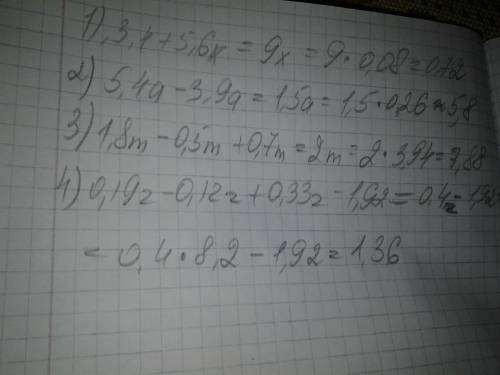 1), 3,4+5,6x = 9x = 9·0,08=0,72
2) 5,4a - 3,9a = 1,5a = 1,5·0,26=5,8
3) 1,8m - 0,5m + 0,7m = 2m = 2·3,94=7,88
4) 0,19z - 0,12z + 0,33z - 1,92 = 0,4z - 1,92
= 0,4·8,2 - 1,92 = 1,36